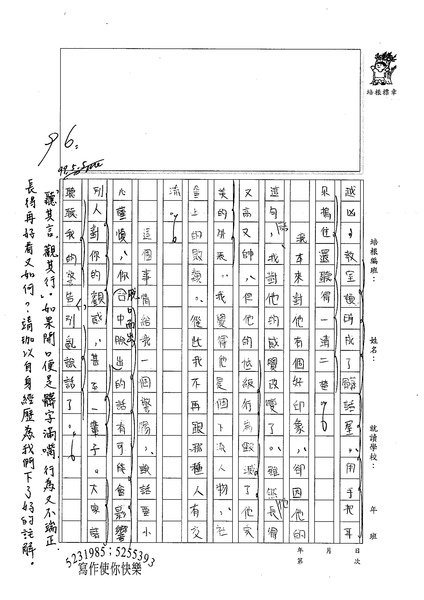 培根標章
培根編班：
姓名：
就讀學校：
年　班
年　月　日
第　次
越凶，教室頓時成了髒話星。用手把耳
朵摀住還聽得一清二楚。
我本來對他有個好印象，卻因他的
這句話，我對他的感覺改變了。雖然他長得
高又帥，但他的低級行為毀滅了他完
美的外表。我覺得他是個下流人物，社
會上的敗類。從此我不再跟那種人有交
流。
這個事情給我一個警惕，說話要小
心謹慎，你口中所說出的話有可能會影響
別人對你的觀感，甚至一輩子。大家請
聽我的警告別亂說話了。
聽其言，觀其行。如果開口便是髒字滿嘴，行為又不端正
長得再好看又如何。靖珈以自身經歷為我們下了好的註解。
96.
5231985；5255393
寫作使你快樂